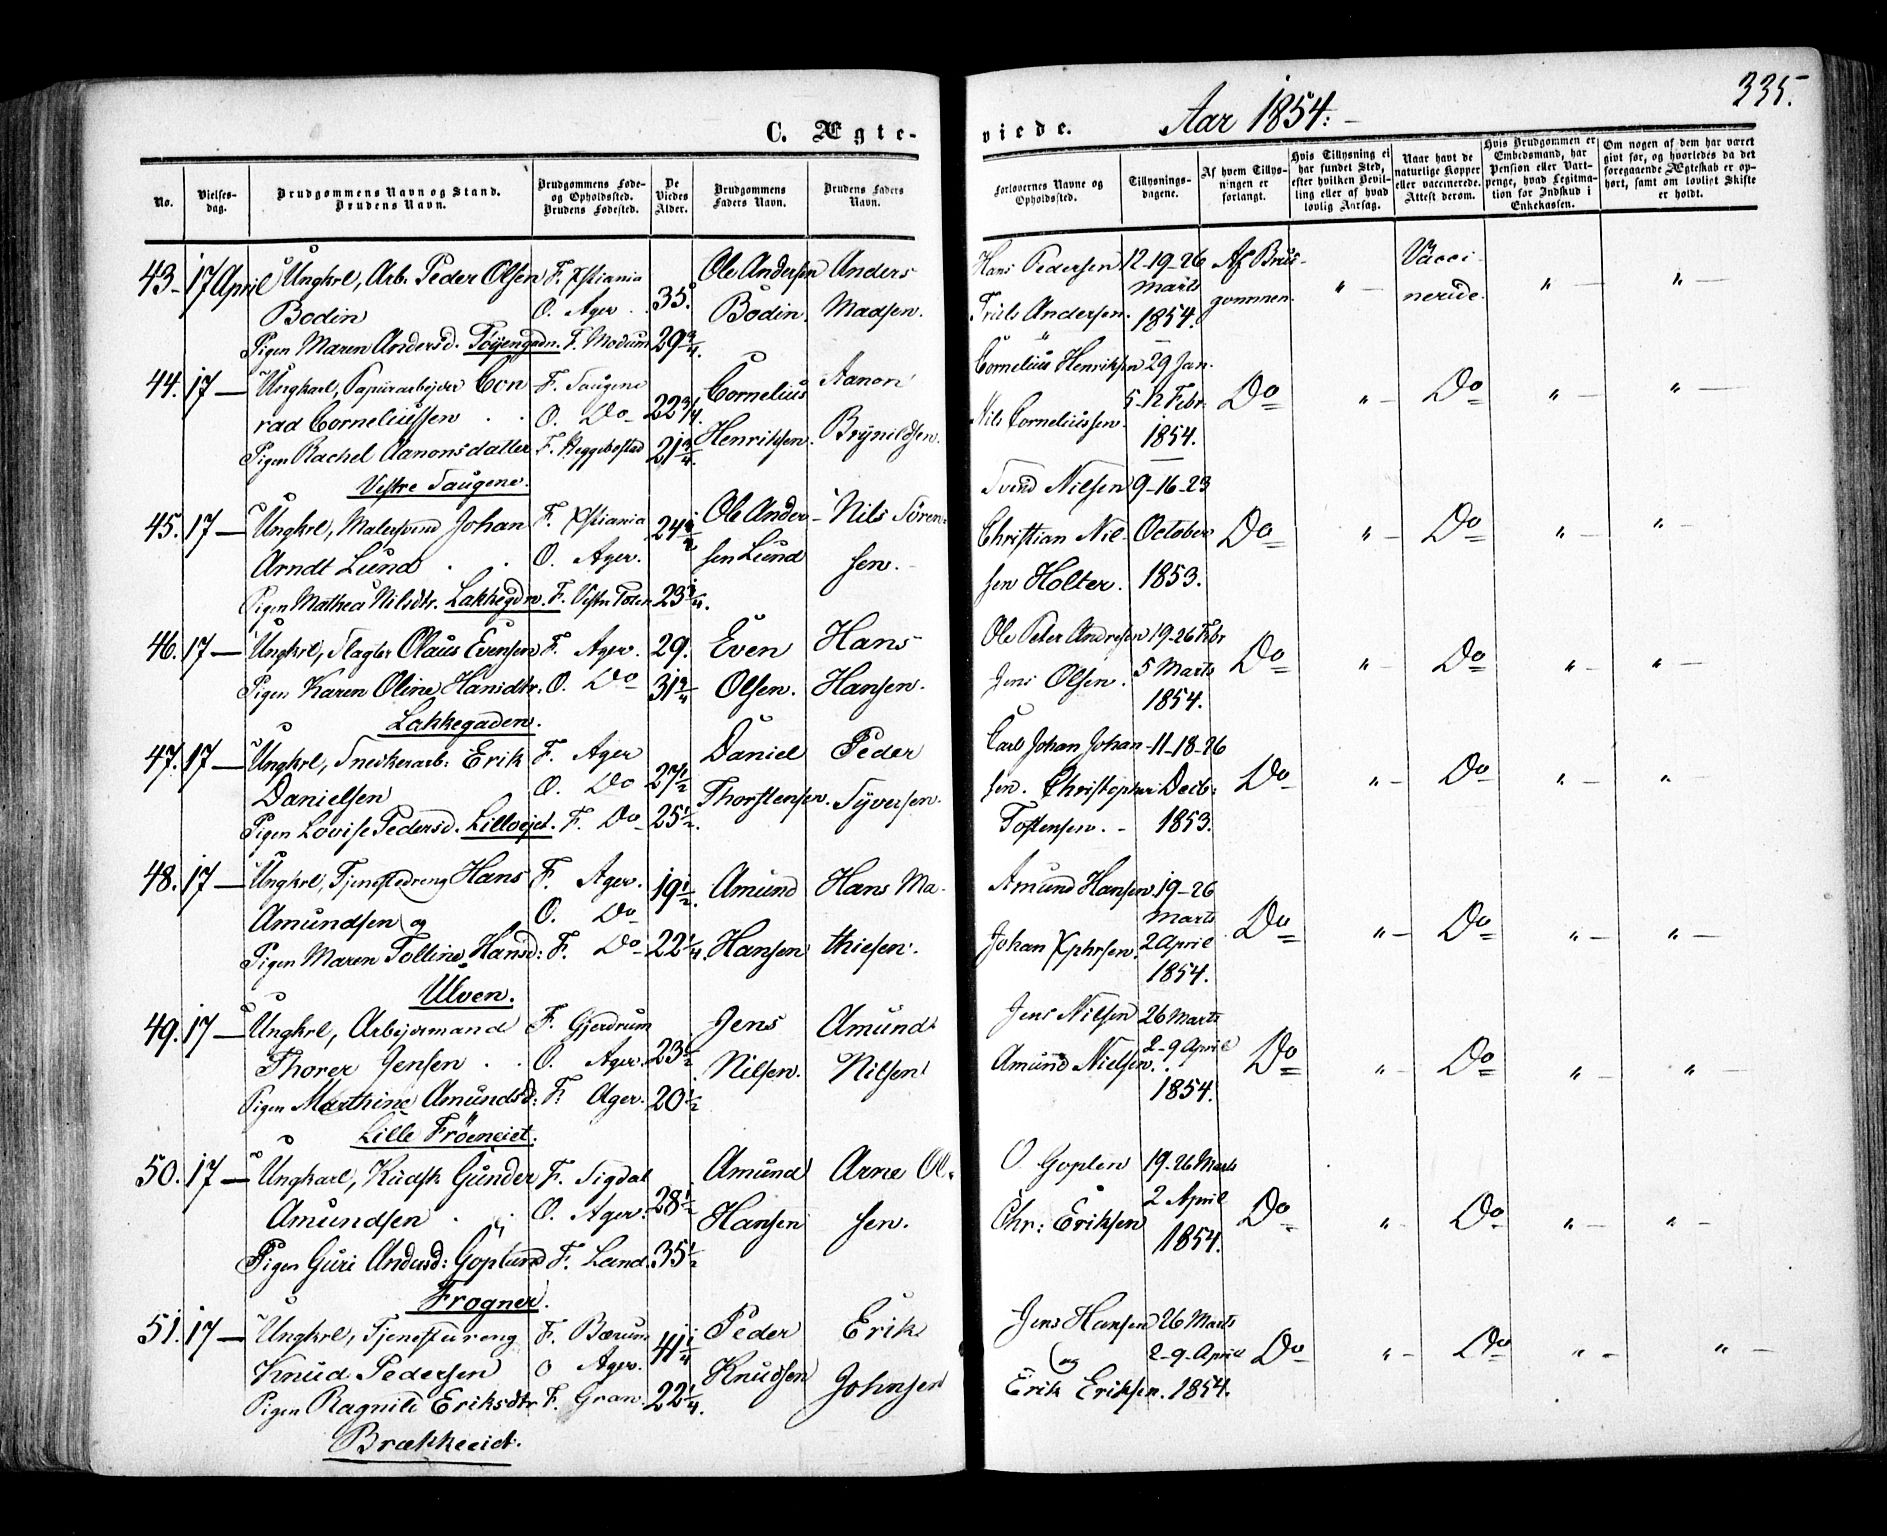 335.
C. Ægte-
viede. Aar 1854.
No.
Vielses-
dag.
Brudgommens Navn og Stand.
Brudens Navn.
Brudgommens Føde-
og Opholdssted.
Brudens Fødested.
De
Viedes
Alder.
Brudgommens
Faders Navn.
Brudens Faders
Navn.
Forlovernes Navne og
Opholdssted.
Tillysnings-
dagene.
Af hvem Tillys-
ningen er
forlangt.
Hvis Tillysning ei
har fundet Sted,
efter hvilken Bevil-
ling eller af hvad
lovlig Aarsag.
Naar havt de
naturlige Kopper
eller vaccinerede.
Attest derom.
Hvis Brudgommen er
Embedsmand, har
Pension eller Vart-
penge, hvad Legitima-
tion for Indskud i
Enkekassen.
Om nogen af dem har været
givt før, og hvorledes da det
foregaaende Ægteskab er op-
hørt, samt om lovligt Skifte
er holdt.
43. 17 April Ungkrl, Arb. Peder Olsen F. Xstiania 35. Ole Andersen Anders
Bodin O. Ager Bodin. Madsen.
Pigen Maren Andersd. Tøyengadn. F. Modum 29 3/4.
Hans Pedersen 12-19-26 Af Brud- " Vacci- " "
Marts gommen. nerede.
Andersen. 1854.
44. 17 — Ungkarl, Papirarbejder Con F. Saugene 22 3/4 Cornelius Aanon
rad Corneliussen O. Do
Pigen Rachel Aanonsdatter F. Heggebostad 21 3/4. Henriksen. Brynildsen.
Vestre Saugene.
Cornelius Henriksen 29 Jan.
5-12 Febr. Do " Do " "
Nils Corneliussen. 1854.
45. 17 — Ungkrl, Malersvend Johan F. Xstiania 24 1/2 Ole Ander- Nils Sören-
Arndt Lund O. Ager. sen Lund sen.
Pigen Mathea Nilsdtr. Lakkegdn. F. Vestre Toten 23 1/4.
Svend Nilsen 9-16-23
Christian Nil- October Do " Do " "
sen Holter. 1853.
46. 17 — Ungkrl, Slagter Olaus Evensen F. Ager. 29. Even Hans
Pigen Karen Oline Hansdtr. O. Do 31 3/4 Olsen. Hansen.
Lakkegaden.
Ole Peter Andresen 19-26 Febr
Jens Olsen. 5 Marts Do " Do " "
1854.
47. 17 — Ungkrl, Snedkerarb: Erik F. Ager 27 1/2 Daniel Peder
Danielsen O. Do Thorstensen. Syversen.
Pigen Lovise Pedersd. Lilloejet. F. Do 25 1/2.
Carl Johan Johan- 11-18-26
sen. Christopher Decbr: Do " Do " "
Tostensen. 1853.
48. 17 — Ungkrl, Tjenestedreng Hans F. Ager. 19 1/2. Amund Hans Ma-
Amundsen og O. Do
Pigen Maren Tolline Hansd: F. Do 22 1/4. Hansen thiesen.
Ulven.
Amund Hansen. 19-26
Marts Do " Do " "
Johan Xphrsen. 2 April
1854.
49. 17 — Ungkrl, Arbejdsmand F. Gjerdrum 23 1/2 Jens Amund
Thorer Jensen O. Ager. Nilsen. Nilsen
Pigen Marthine Amundsd: F. Ager. 20 1/2
Lille Frøeneiet.
Jens Nilsen 26 Marts
2-9 April Do " Do " "
Amund Nielsen. 1854.
50. 17 — Ungkarl, Kudsk Gunder F. Sigdal 28 1/2 Amund Arne Ol-
Amundsen O. Ager. Hansen sen.
Pigen Guri Andersd: Goplund F. Land. 35 1/2
Frogner.
O. Goplen 19-26 Marts
2 April Do " Do " "
Chr: Eriksen 1854.
51. 17 — Ungkrl, Tjenestdreng F. Bærum 41 1/4 Peder Erik
Knud Pedersen O Ager. Knudsen Johnsen
Pigen Ragnild Eriksdtr F. Gran. 22 1/4.
Brækkeeiet.
Jens Hansen 26 Marts
og 2-9-April Do " Do " "
Erik Eriksen. 1854.